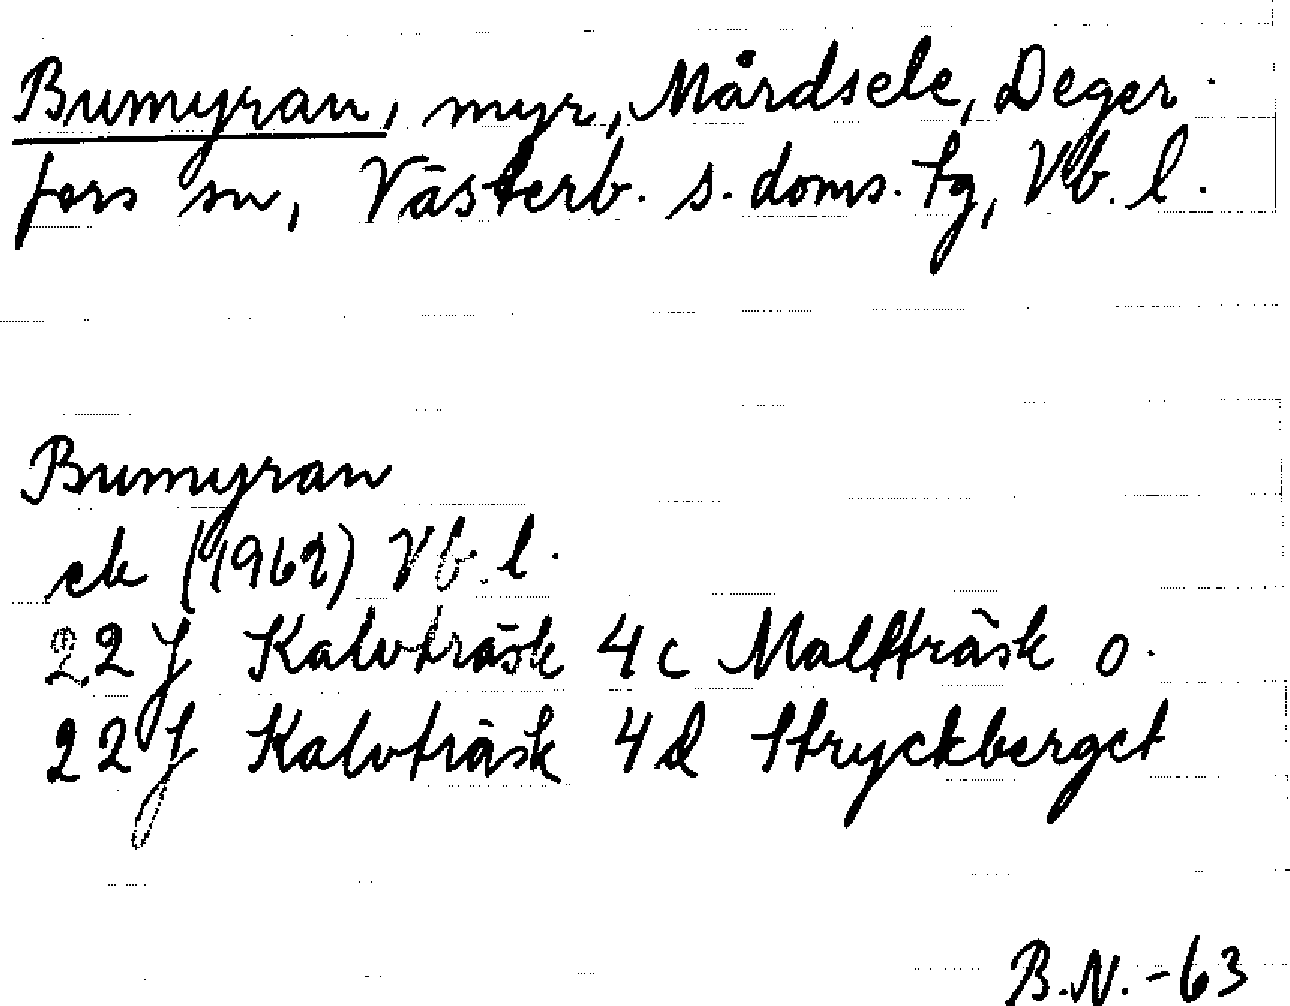 Bumyran, myr, Mårdsele, Deger-
fors sn, Västerb. s. doms. tg, Vb. l.
Bumyran
ek (1962) Vb. l.
22 J Kalvträsk 4 c Maltträsk o.
22 J Kalvträsk 4 d Stryckberget
B.N. -63